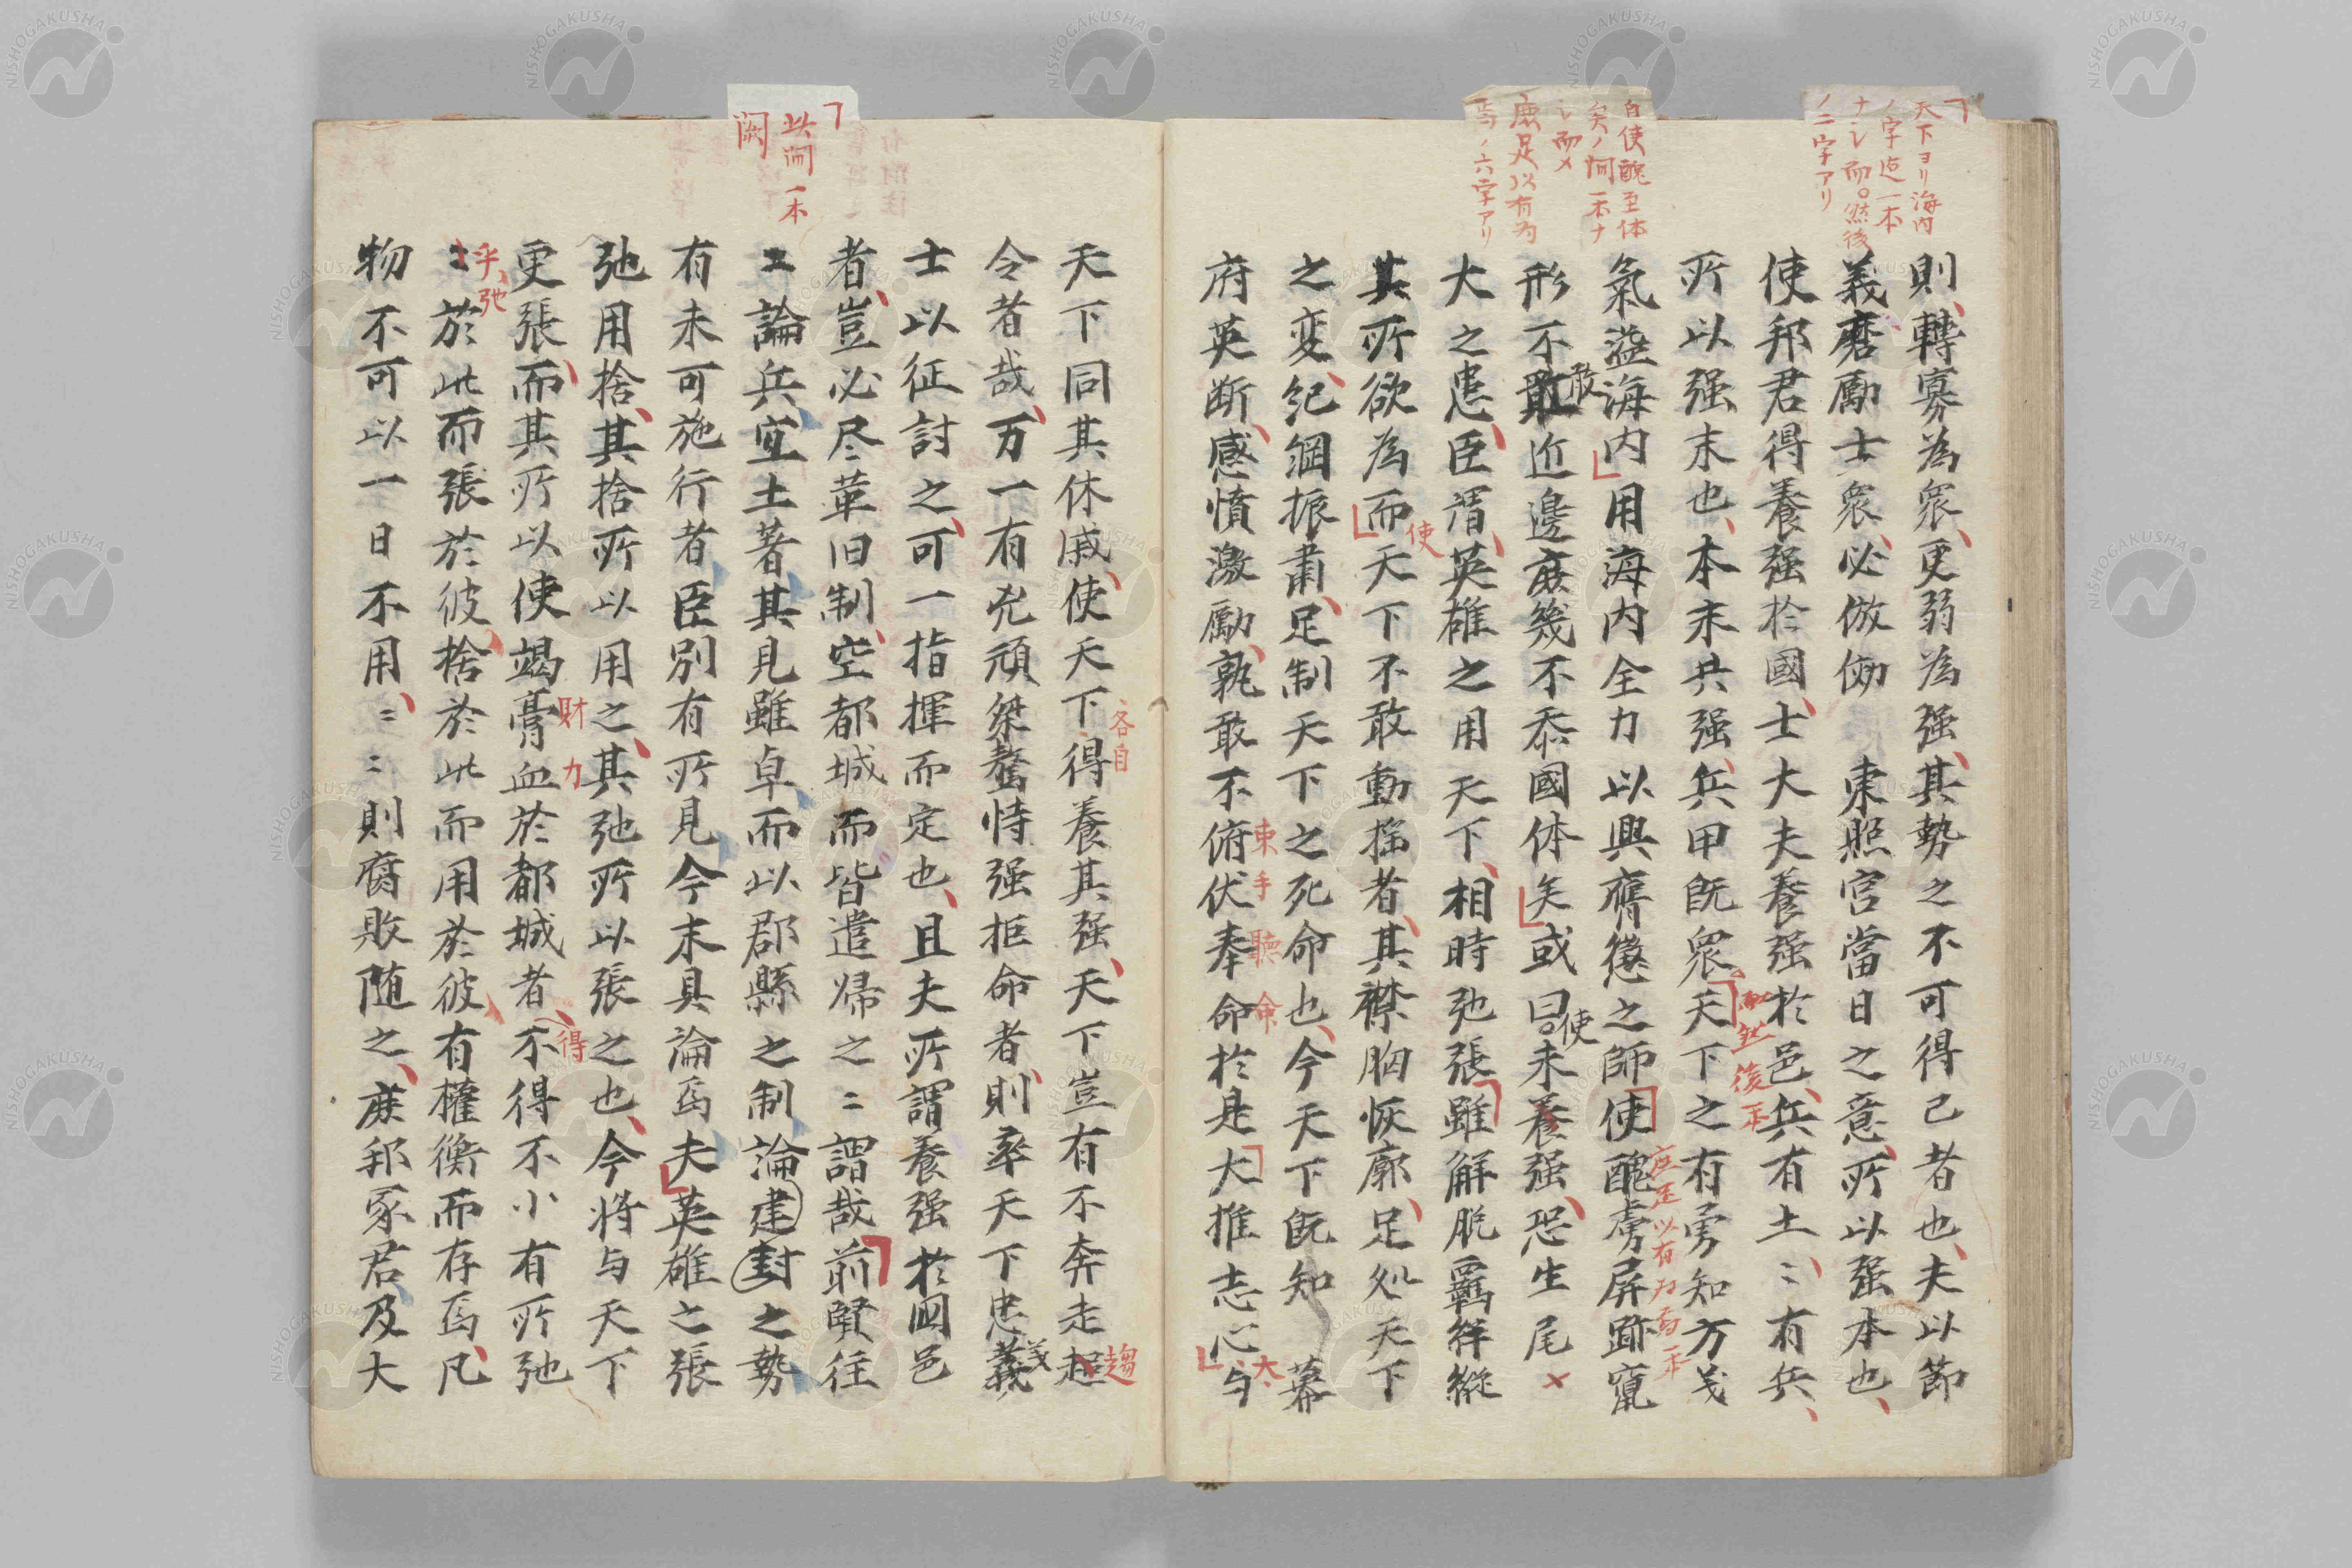 天下ヨリ海内
ノ字迠一本
ナシ而。然後
ノ二字アリ
自使醜至体
矣ノ間一本ナ
シ而メ
庶足以有為
焉ノ六字アリ
則轉寡為衆更弱為强其勢之不可得已者也夫以節
義磨勵士衆必倣傚 東照宮當日之意所以强本也
使邦君得養强於國士大夫養强於邑兵有土〻有兵
所以强末也本末共强兵甲既衆天下之有勇知方㦮
而然後本
氣溢海内用海内全力以興膺懲之師使醜虜屏跡竄
庶足以有為焉本
形不敢近邊庶幾不忝國体矣或曰未養强恐生尾
敢
使
大之患臣謂英雄之用天下相時弛張雖解脱羈絆縦
其所欲為而天下不敢動揺者其襟胸恢廓足処天下
使
之変紀綱振肅足制天下之死命也今天下既知 幕
府英断感憤激勵孰敢不俯伏奉命於是大推志心与
束手聽命
大
天下同其休戚使天下得養其强天下豈有不奔走超
各自
趨
令者哉万一有兇頑桀驁恃强拒命者則率天下忠義
義
士以征討之可一指揮而定也且夫所謂養强於国邑
者豈必尽革旧制空都城而皆遣帰之〻謂哉前賢往
〻論兵宜土著其見雖卓而以郡縣之制論建封之勢
有未可施行者臣別有所見今未具論焉夫英雄之張
弛用捨其捨所以用之其弛所以張之也今将与天下
更張而其所以使竭膏血於都城者不得不小有所弛
財力
得
〻於此而張於彼捨於此而用於彼有權衡而存焉凡
乎弛
物不可以一日不用〻〻則腐敗随之庶邦冢君及大
以間一本
闕